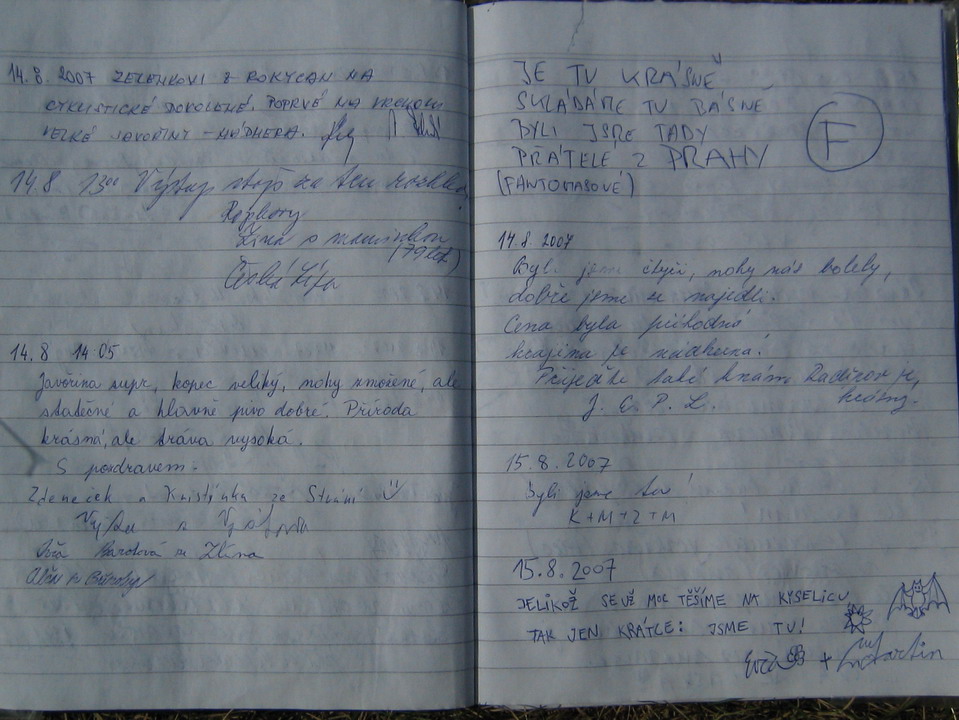 14.8. 2007 ZELENKOVI Z ROKYCAN NA
CYKLISTICKÉ DOVOLENÉ. POPRVÉ NA VRCHOLU
VELKÉ JAVOŘINY - NÁDHERA.
14.8. 13⁰⁰ Výstup stojí za ten rozhled
Řepkovy
s maminkou
(79 let)
Česká Lípa
14.8 14 05
Javořina supr, kopec veliký, nohy zmožené, ale
statečné a hlavně pivo dobré. Příroda
krásná, ale tráva vysoká.
S pozdravem.
Zdeneček a Kristýnka ze Strání
ze Zlína
JE TU KRÁSNĚ
SKLÁDÁME TU BÁSNĚ
BYLI JSME TADY
PŘÁTELE Z PRAHY
(FANTOMASOVÉ)
F
14.8. 2007
Byli jsme čtyři, nohy nás bolely,
dobře jsme se najedli.
Cena byla příhodná,
krajina je nádherná!
Přijeďte také k nám Radizov je
krásný.
J. E. P. L.
15.8.2007
Byli jsme tu!
K+M+Z+M
15.8.2007
JELIKOŽ SE UŽ MOC TĚŠÍME NA KYSELICU,
TAK JEN KRÁTCE: JSME TU!
Evča + Martin